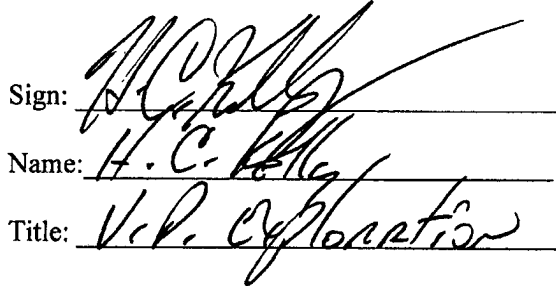 Sign: H.C. Kelly
Name: H. C. Kelly
Title: V.P. Exploration